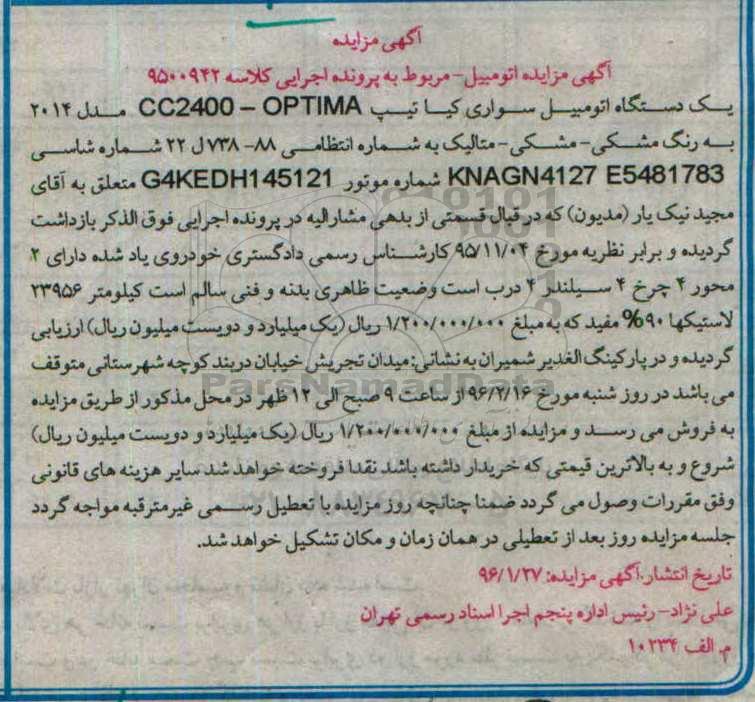 آگهی مزایده
آگهی مزایده اتومبیل- مربوط به پرونده اجرایی کلاسه ۹۵۰۰۹۴۲
یک دستگاه اتومبیل سواری کیا تیپ CC2400 – OPTIMA مدل ۲۰۱۴
به رنگ مشکی- مشکی- متالیک به شماره انتظامی ۸۸- ۷۳۸ل ۲۲ شماره شاسی
KNAGN4127 E5481783 شماره موتور G4KEDH145121 متعلق به آقای
مجید نیک یار (مدیون) که در قبال قسمتی از بدهی مشارالیه در پرونده اجرایی فوق الذکر بازداشت
گردیده و برابر نظریه مورخ ۹۵/۱۱/۰۴ کارشناس رسمی دادگستری خودروی یاد شده دارای ۲
محور ۴ چرخ ۴ سیلندر ۴ درب است وضعیت ظاهری بدنه و فنی سالم است کیلومتر ۲۳۹۵۶
لاستیکها ۹۰% مفید که به مبلغ ۱/۲۰۰/۰۰۰/۰۰۰ ریال (یک میلیارد و دویست میلیون ریال) ارزیابی
گردیده و در پارکینگ الغدیر شمیران به نشانی: میدان تجریش خیابان دربند کوچه شهرستانی متوقف
ParsNamadData
می باشد در روز شنبه مورخ ۹۶/۲/۱۶ از ساعت ۹ صبح الی ۱۲ ظهر در محل مذکور از طریق مزایده
به فروش می رسد و مزایده از مبلغ ۱/۲۰۰/۰۰۰/۰۰۰ ریال (یک میلیارد و دویست میلیون ریال)
شروع و به بالاترین قیمتی که خریدار داشته باشد نقدا فروخته خواهد شد سایر هزینه های قانونی
وفق مقررات وصول می گردد ضمنا چنانچه روز مزایده با تعطیل رسمی غیرمترقبه مواجه گردد
جلسه مزایده روز بعد از تعطیلی در همان زمان و مکان تشکیل خواهد شد.
تاریخ انتشار آگهی مزایده: ۹۶/۱/۲۷
علی نژاد- رئیس اداره پنجم اجرا اسناد رسمی تهران
م. الف ۱۰۲۳۴